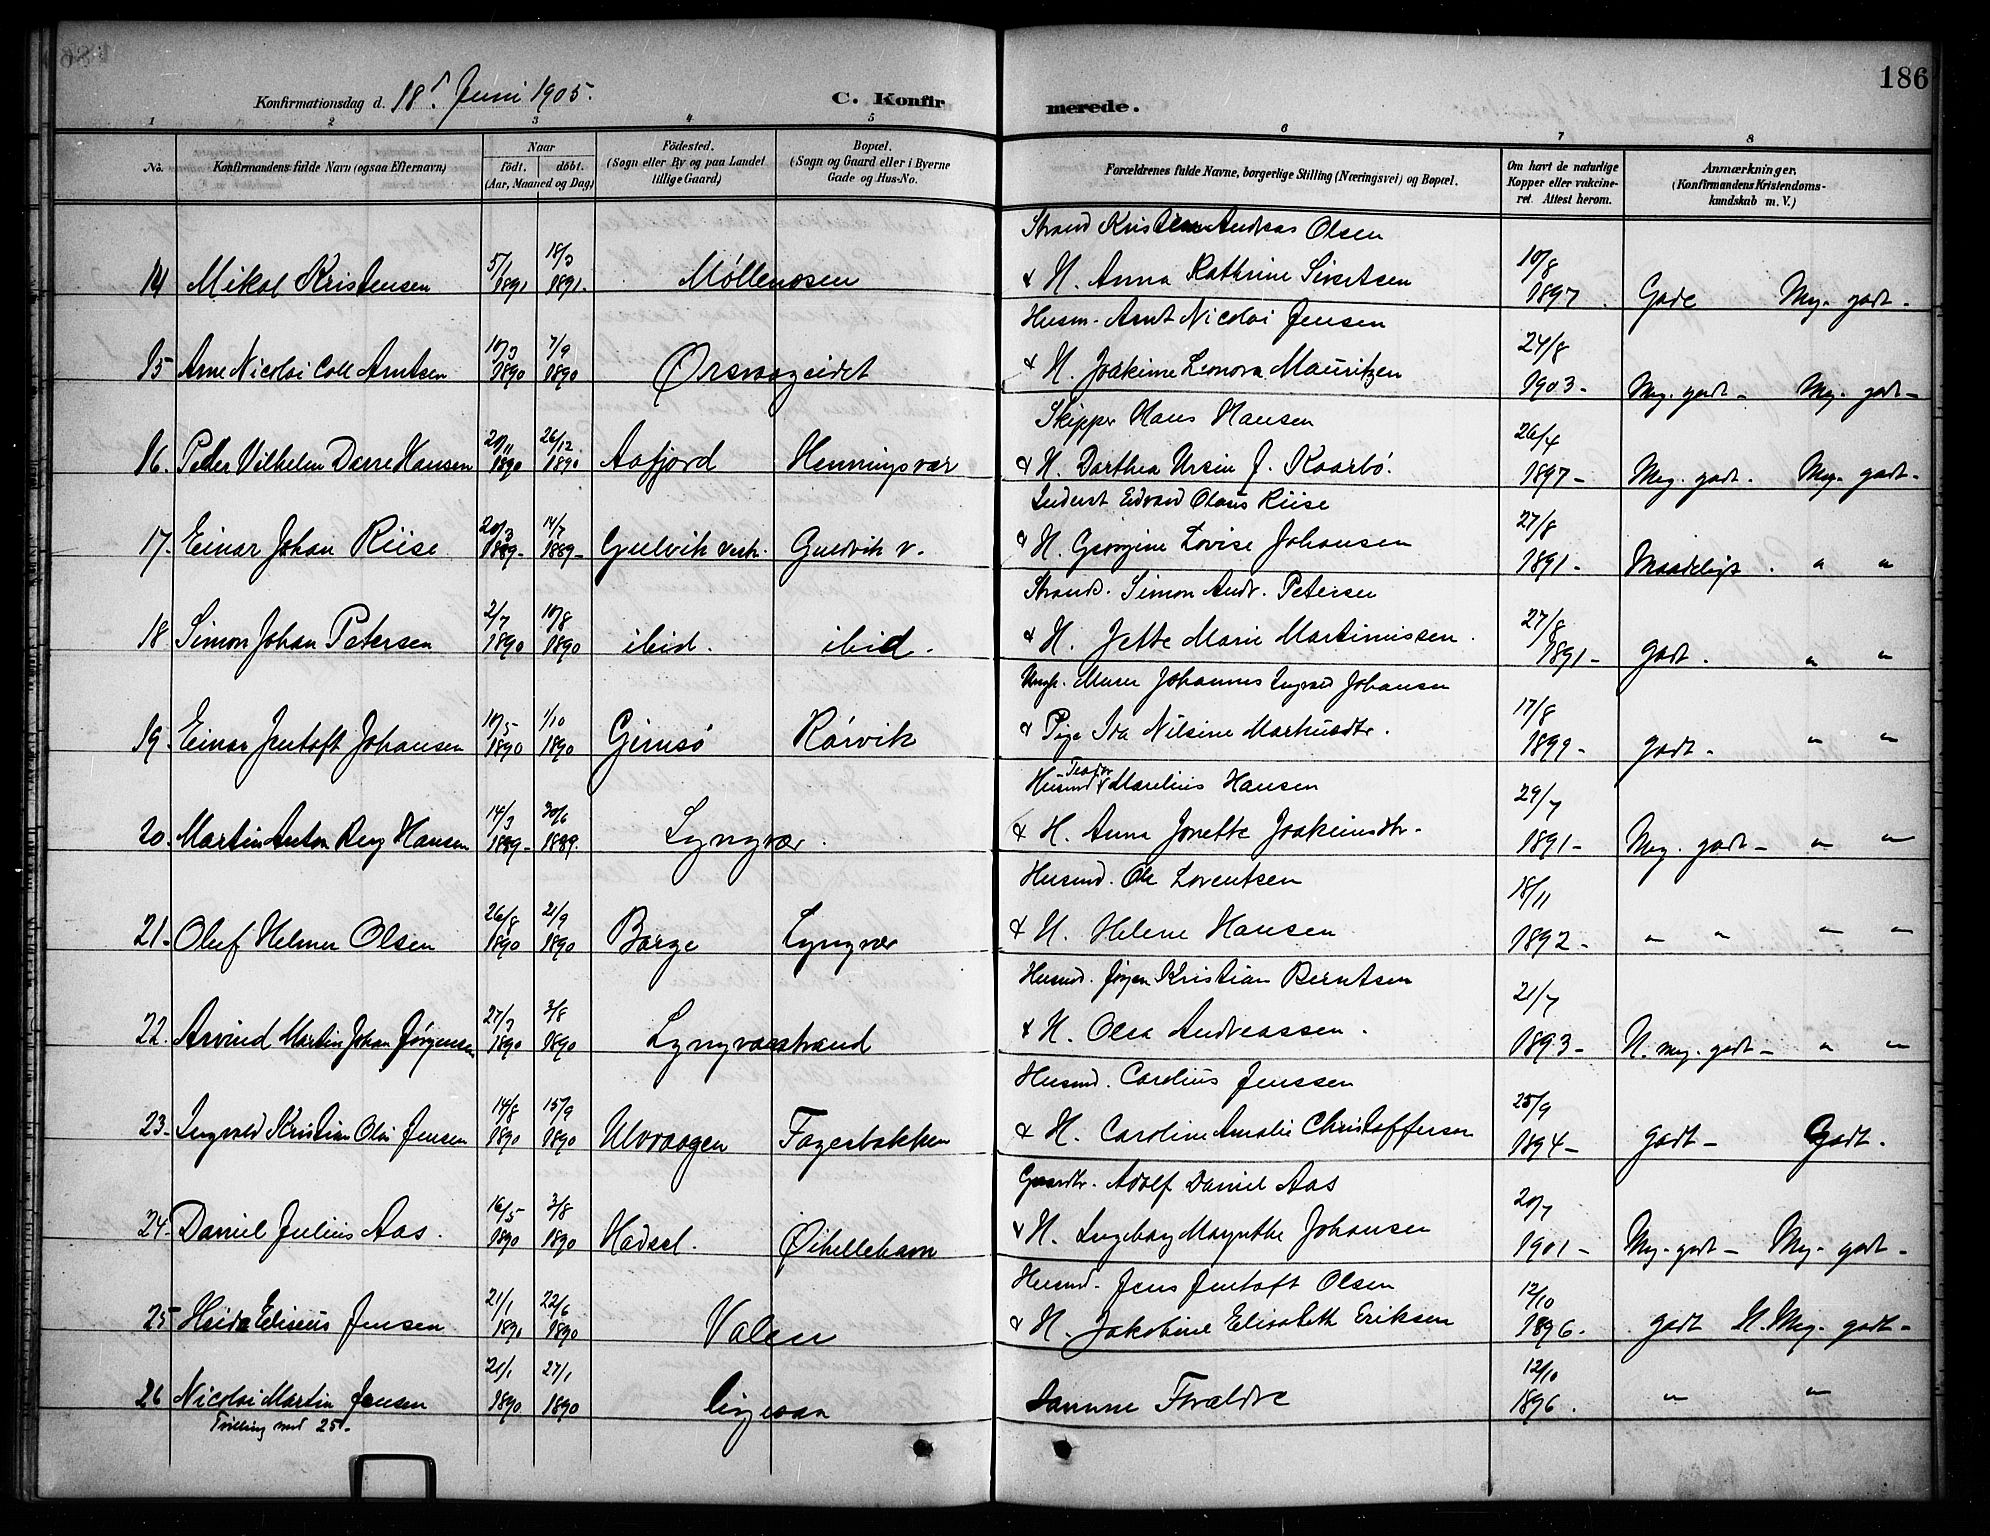 186
Konfirmationsdag d. 18d Juni 1905. C. Konfir merede.
1 2 3 4 5 6 7 8
No. Konfirmandens fulde Navn (ogsaa Efternavn) Naar födt. döbt. (Aar, Maaned og Dag) Födested. (Sogn eller By og paa Landet tillige Gaard) Bopæl. (Sogn og Gaard eller i Byerne Gade og Hus-No. Forældrenes fulde Navne, borgerlige Stilling (Næringsvei) og Bopæl. Om havt de naturlige Kopper eller vakcineret. Attest herom. Anmærkninger. (Konfirmandens Kristendomskundskab m. V.)
Strand Kristen Andreas Olsen
14 Mikal Kristensen 1891 18/3 1891. Møllenosen & H. Anna Kathrine Sivertsen 10/8 1897. Gode Meg. godt.
Husm. Arnt Nicolai Jensen
15 Arne Nicolai Coll Arntsen 10/3 1890 7/9 1890 Ørsvaageidet & H. Joakime Leonora Mauritzen 24/8 1903- Meg. godt - Meg. godt -
Skipper Hans Hansen
16. Peder Vilhelm Darre Hansen 20/11 1890 26/12 1890 Aafjord Henningsvær & H. Dorthea Ursin f. Kaarbö. 26/4 1897- Meg. godt. Meg. godt.
Inderst Edvard Olaus Riise
17. Einar Johan Riise 20/3 1889- 14/7 1889- Gulvik vestr. Guldvik v. & H. Georgine Lovise Johansen 27/8 1891- Maadeligt. " "
Strands. Simon Andr. Petersen
18. Simon Johan Petersen 2/7 1890 10/8 1890 ibid. ibid. & H. Jette Marie Martinussen. 27/8 1891- godt. " "
Ungk. Murer Johannes Ingvald Johansen
19. Einar Jentoft Johansen 10/5 1890 1/10 1890 Gimsö Rörvik & Pige Ida Nilsine Markusdtr. 17/8 1899- godt- " "
Husmd Teodor Marelius Hansen
20. Martin Anton Berg Hansen 14/3 1889- 30/6 1889. Lyngvær. & H. Anna Jonette Joakimsdtr. 29/7 1891- Meg. godt- " "
Husmd. Ole Lorentsen
21- Oluf Helmer Olsen 26/8 1890 21/9 1890 Borge Lyngvær & H. Helene Hansen 18/11 1892- " " " "
Husmd. Jørgen Kristian Berntsen
22. Arvind Martin Johan Jørgensen 27/3 1890 3/8 1890 Lyngværstrand & H. Olea Andreassen. 21/7 1893- N. meg. godt- " "
Husmd. Carelius Jenssen
23- Ingvald Kristian Olai Jensen 14/8 1890 15/9 1890 Ulvvaagen Fagerbakken & H. Caroline Amalie Christoffersen 25/9 1894- godt- Godt.
Gaardbr. Adolf Daniel Aas
24. Daniel Julius Aas. 16/5 1890 3/8 1890 Hadsel. Øihellehavn & H. Ingeborg Magnthe Johansen 20/7 1901- Meg. godt- Meg. godt-
Husmd. Jens Jentoft Olsen
25 Eliseus Jensen 21/1 1890 22/6 1890 Valen & H. Jakobine Elisabeth Eriksen 12/10 1896. godt N. Meg. godt-
26 Nicolai Martin Jensen 21/1 1890 27/1 1890 Samme Forældre 12/10 1896. " "
Tvilling med 25.